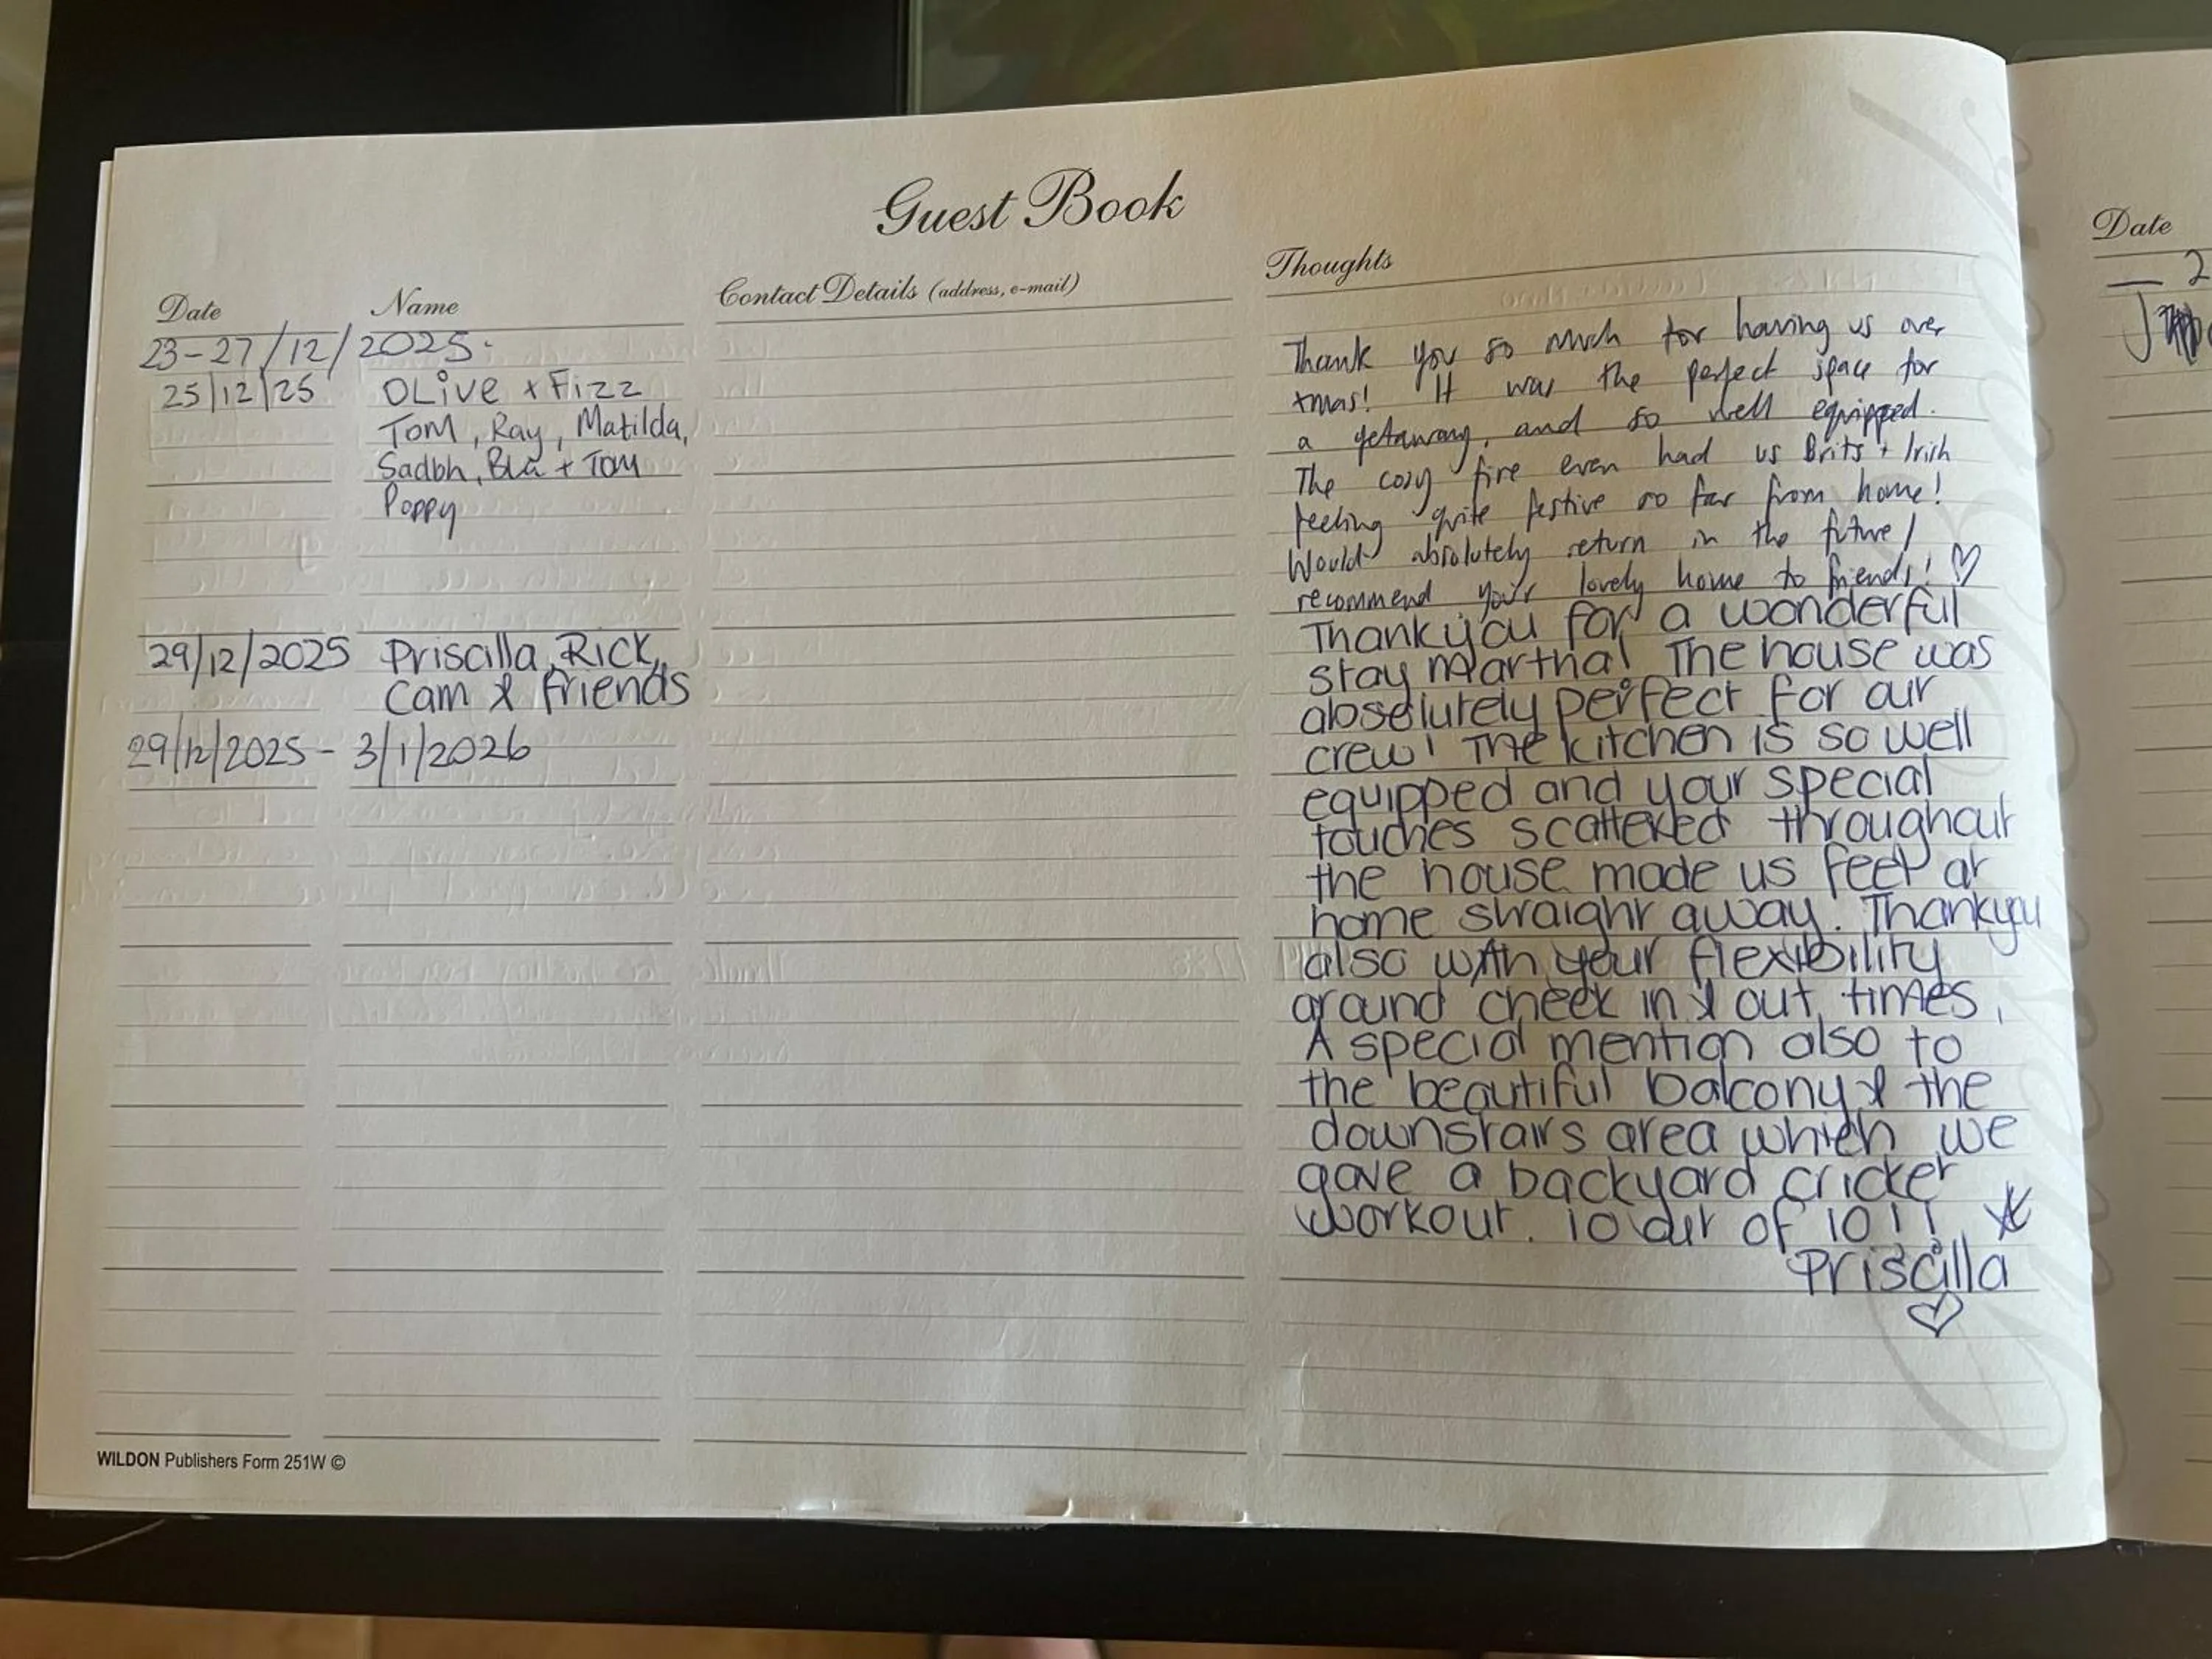 Guest Book
Date Name Contact Details (address, e-mail) Thoughts
23-27/12/2025.
25/12/25 OLive + Fizz
Tom, Ray, Matilda,
Sadbh, Bla + Tom
Poppy
Thank you so much for having us over
xmas! It was the perfect space for
a getaway, and so well equipped.
The cosy fire even had us Brits + Irish
feeling quite festive so far from home!
Would absolutely return in the future /
recommend your lovely home to friends! ♡
29/12/2025 Priscilla, Rick,
Cam & friends
29/12/2025 - 3/1/2026
Thankyou for a wonderful
stay Martha! The house was
absolutely perfect for our
crew! The kitchen is so well
equipped and your special
touches scattered throughout
the house made us feel at
home straight away. Thankyou
also with your flexibility
around check in & out times.
A special mention also to
the beautiful balcony & the
downstairs area which we
gave a backyard cricket
workout. 10 out of 10!!
Priscilla
♡
WILDON Publishers Form 251W ©
Date
2